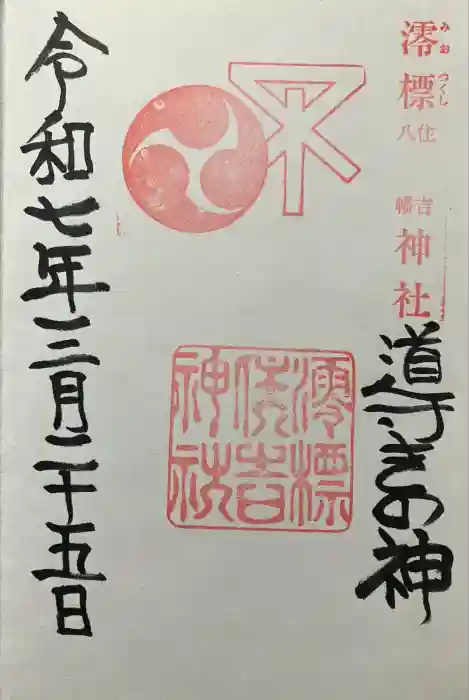 みおつくし
澪標
住吉
八幡
神社
導きの神
澪標
住吉
神社
令和七年三月二十五日